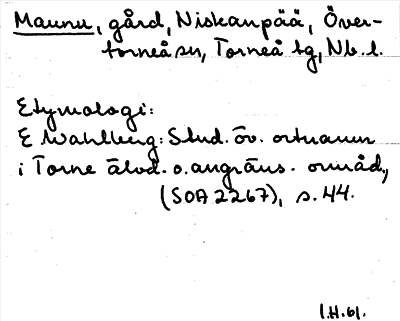 Maunu, gård, Niskanpää, Över-
torneå sn, Torneå tg, Nb. l.
Etymologi:
E Wahlberg: Stud. öv. ortnamn
i Torne älvd. o. angräns. områd.,
(SOA 2267), s. 44.
I.H. 61.